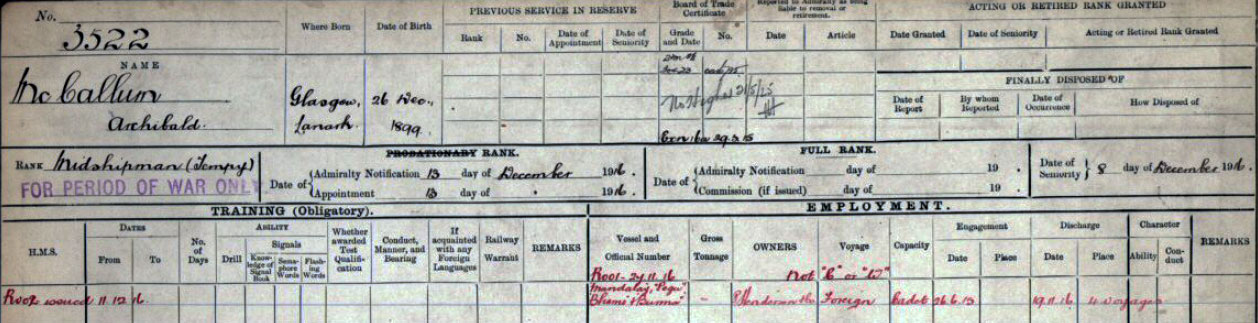 No.
3522
NAME
McCallum
Archibald.
Where Born
Glasgow,
Lanark
Date of Birth
26 Dec.,
1899
PREVIOUS SERVICE IN RESERVE
Rank
No.
Date of Appointment
Date of Seniority
Board of Trade Certificate
Grade and Date
No.
No Higher 21/5/25
Reported to Admiralty as being liable to removal or retirement.
Date
Article
ACTING OR RETIRED RANK GRANTED
Date Granted
Date of Seniority
Acting or Retired Rank Granted
FINALLY DISPOSED OF
Date of Report
By whom Reported
Date of Occurrence
How Disposed of
RANK Midshipman (Tempy)
FOR PERIOD OF WAR ONLY.
PROBATIONARY RANK.
Date of
Admiralty Notification 13 day of December 1916.
Appointment 13 day of " 1916.
FULL RANK.
Date of
Admiralty Notification day of 19 .
Commission (if issued) day of 19 .
Date of Seniority 8 day of December 1916.
TRAINING (Obligatory).
H.M.S.
DATES
From
To
No. of Days
ABILITY
Drill
Signals
Knowledge of Signal Book
Semaphore Words
Flashing Words
Whether awarded Test Qualification
Conduct, Manner, and Bearing
If acquainted with any Foreign Languages
Railway Warrant
REMARKS
EMPLOYMENT.
Vessel and Official Number
Gross Tonnage
OWNERS
Voyage
Capacity
Engagement
Date
Place
Discharge
Date
Place
Character
Ability
Conduct
REMARKS
11.12.16.
27.11.16
Not "C" or "W"
Mandalay, "Pegu"
Bhamo & Burma
-
P Henderson & Co
Foreign
Cadet
26.6.15
19.11.16
4 voyages